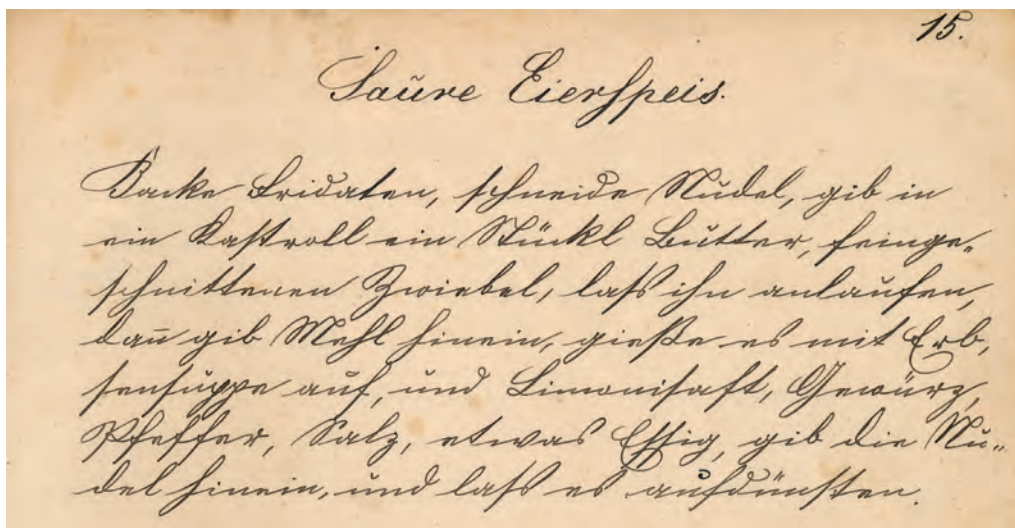 15.
Saure Eierspeis.
Backe Fridaten, schneide Nudel, gib in
ein Kastroll ein Stückl Butter, feinge„
schnittenen Zwiebel, lass ihn anlaufen,
dan̄ gib Mehl hinein, gieße es mit Erb„
sensuppe auf, und Limonisaft, Gewürz,
Pfeffer, Salz, etwas Essig, gib die Nu„
del hinein, und lass es aufdünsten.